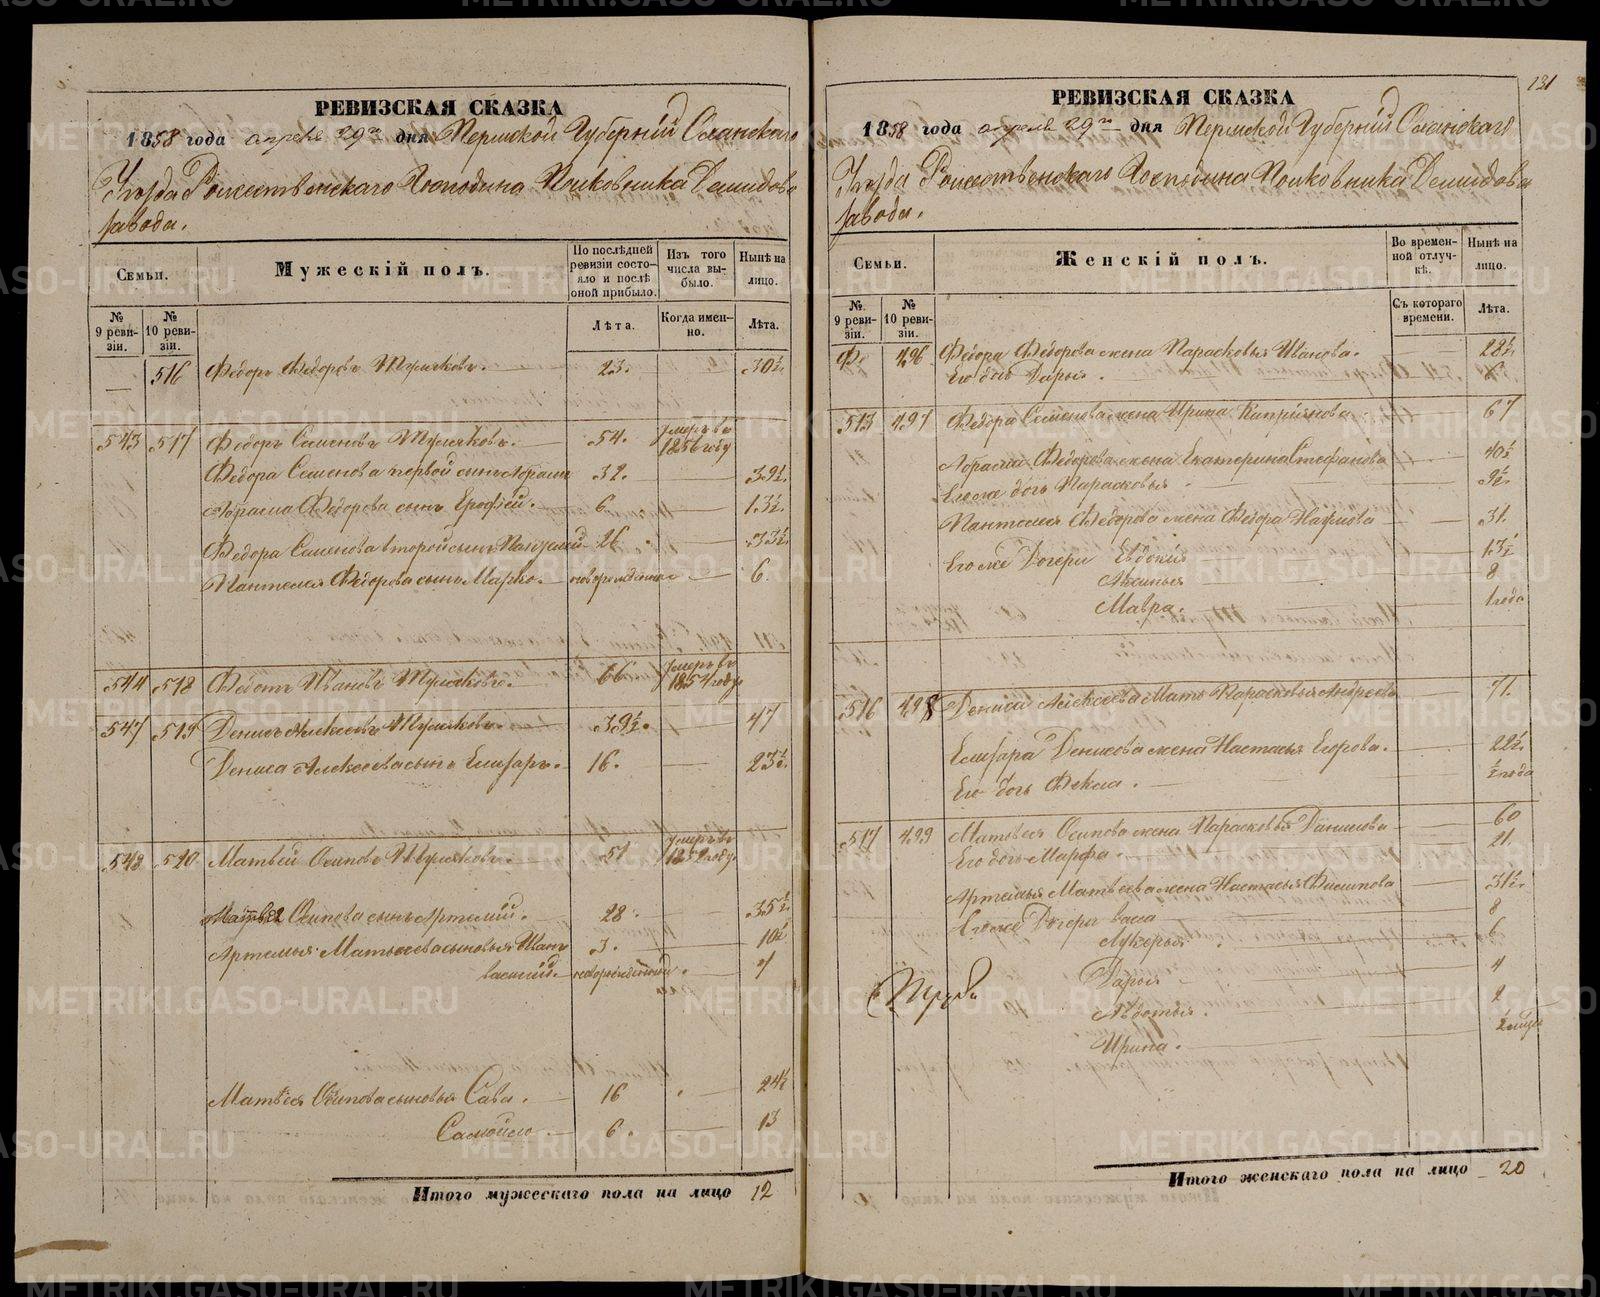 РЕВИЗСКАЯ СКАЗКА
1858 года апреля 29го дня Пермской Губернии Оханскаго
Уезда Рожественскаго Господина Полковника Демидова
завода.
Семьи.
Мужескій полъ.
По послѣдней ревизіи состо-
яло и послѣ оной прибыло.
Изъ того числа вы-
было.
Нынѣ на лицо.
№ 9 реви-
зіи.
№ 10 реви-
зіи.
Лѣта.
Когда имен-
но.
Лѣта.
516 Федоръ Федоровъ 23. 30½
543 517 Федоръ Семеновъ 54. умеръ въ 1856 году
Федора Семенова первой сынъ Абрамъ 32. 39½
Абрама Федорова сынъ Ерофей. 6. 13½
Федора Семенова второй сынъ Пантелей 26. 33½
Пантелея Федорова сынъ Марко. новорожденный 6.
544 518 Федотъ Ивановъ 66 умеръ въ 1854 году
547 519 Денисъ Алексеевъ 39½. 47
Дениса Алексеева сынъ Елизаръ. 16. 23½
548 520 Матвей Осиповъ 51 умеръ въ году
Матвея Осипова сынъ Артемий. 28. 35½
Артемья Матвеева сыновья Иванъ 3. 10½
Василий. новорожденный 7
Матвея Осипова сыновья Сава. 16 24½
Самойло. 6. 13
Итого мужескаго пола на лицо 12
131
РЕВИЗСКАЯ СКАЗКА
1858 года апреля 29го дня Пермской Губернии Оханскаго
Уезда Рожественскаго Господина Полковника Демидова
завода.
Семьи.
Женскій полъ.
Во времен-
ной отлуч-
кѣ.
Нынѣ на лицо.
№ 9 реви-
зіи.
№ 10 реви-
зіи.
Съ котораго времени.
Лѣта.
496 Федора Федорова жена Парасковья Иванова. 28½
Его дочь Дарья.
513 497 Федора Семенова жена Ирина Киприянова 67
Абрама Федорова жена Екатерина Стефанова 40½
Его же дочь Парасковья 9½
Пантелея Федорова жена Федора Наумова 31.
Его же Дочери Евдокия 13½
Аксинья 8
Мавра. 1 года
516 498 Дениса Алексеева Мать Парасковья Андреева 71.
Елизара Денисова жена Настасья Егорова. 22½
Его дочь Фекла. ½ года
517 499 Матвея Осипова жена Парасковья Данилова 60
Его дочь Марфа. 21.
Артемья Матвеева жена Настасья Филипова 31½
Его же Дочери Васса 8
Лукерья 6
Дарья 4
Авдотья. 2
Ирина.
Итого женскаго пола на лицо 20
METRIKI.GASO-URAL.RU